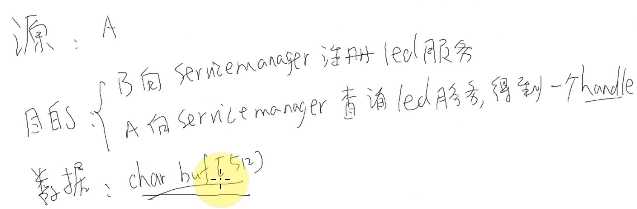 源：A
目的：{ B向 servicemanager 注册 led服务
A向 service manager 查询 led服务，得到一个handle
数据：char buf[512]